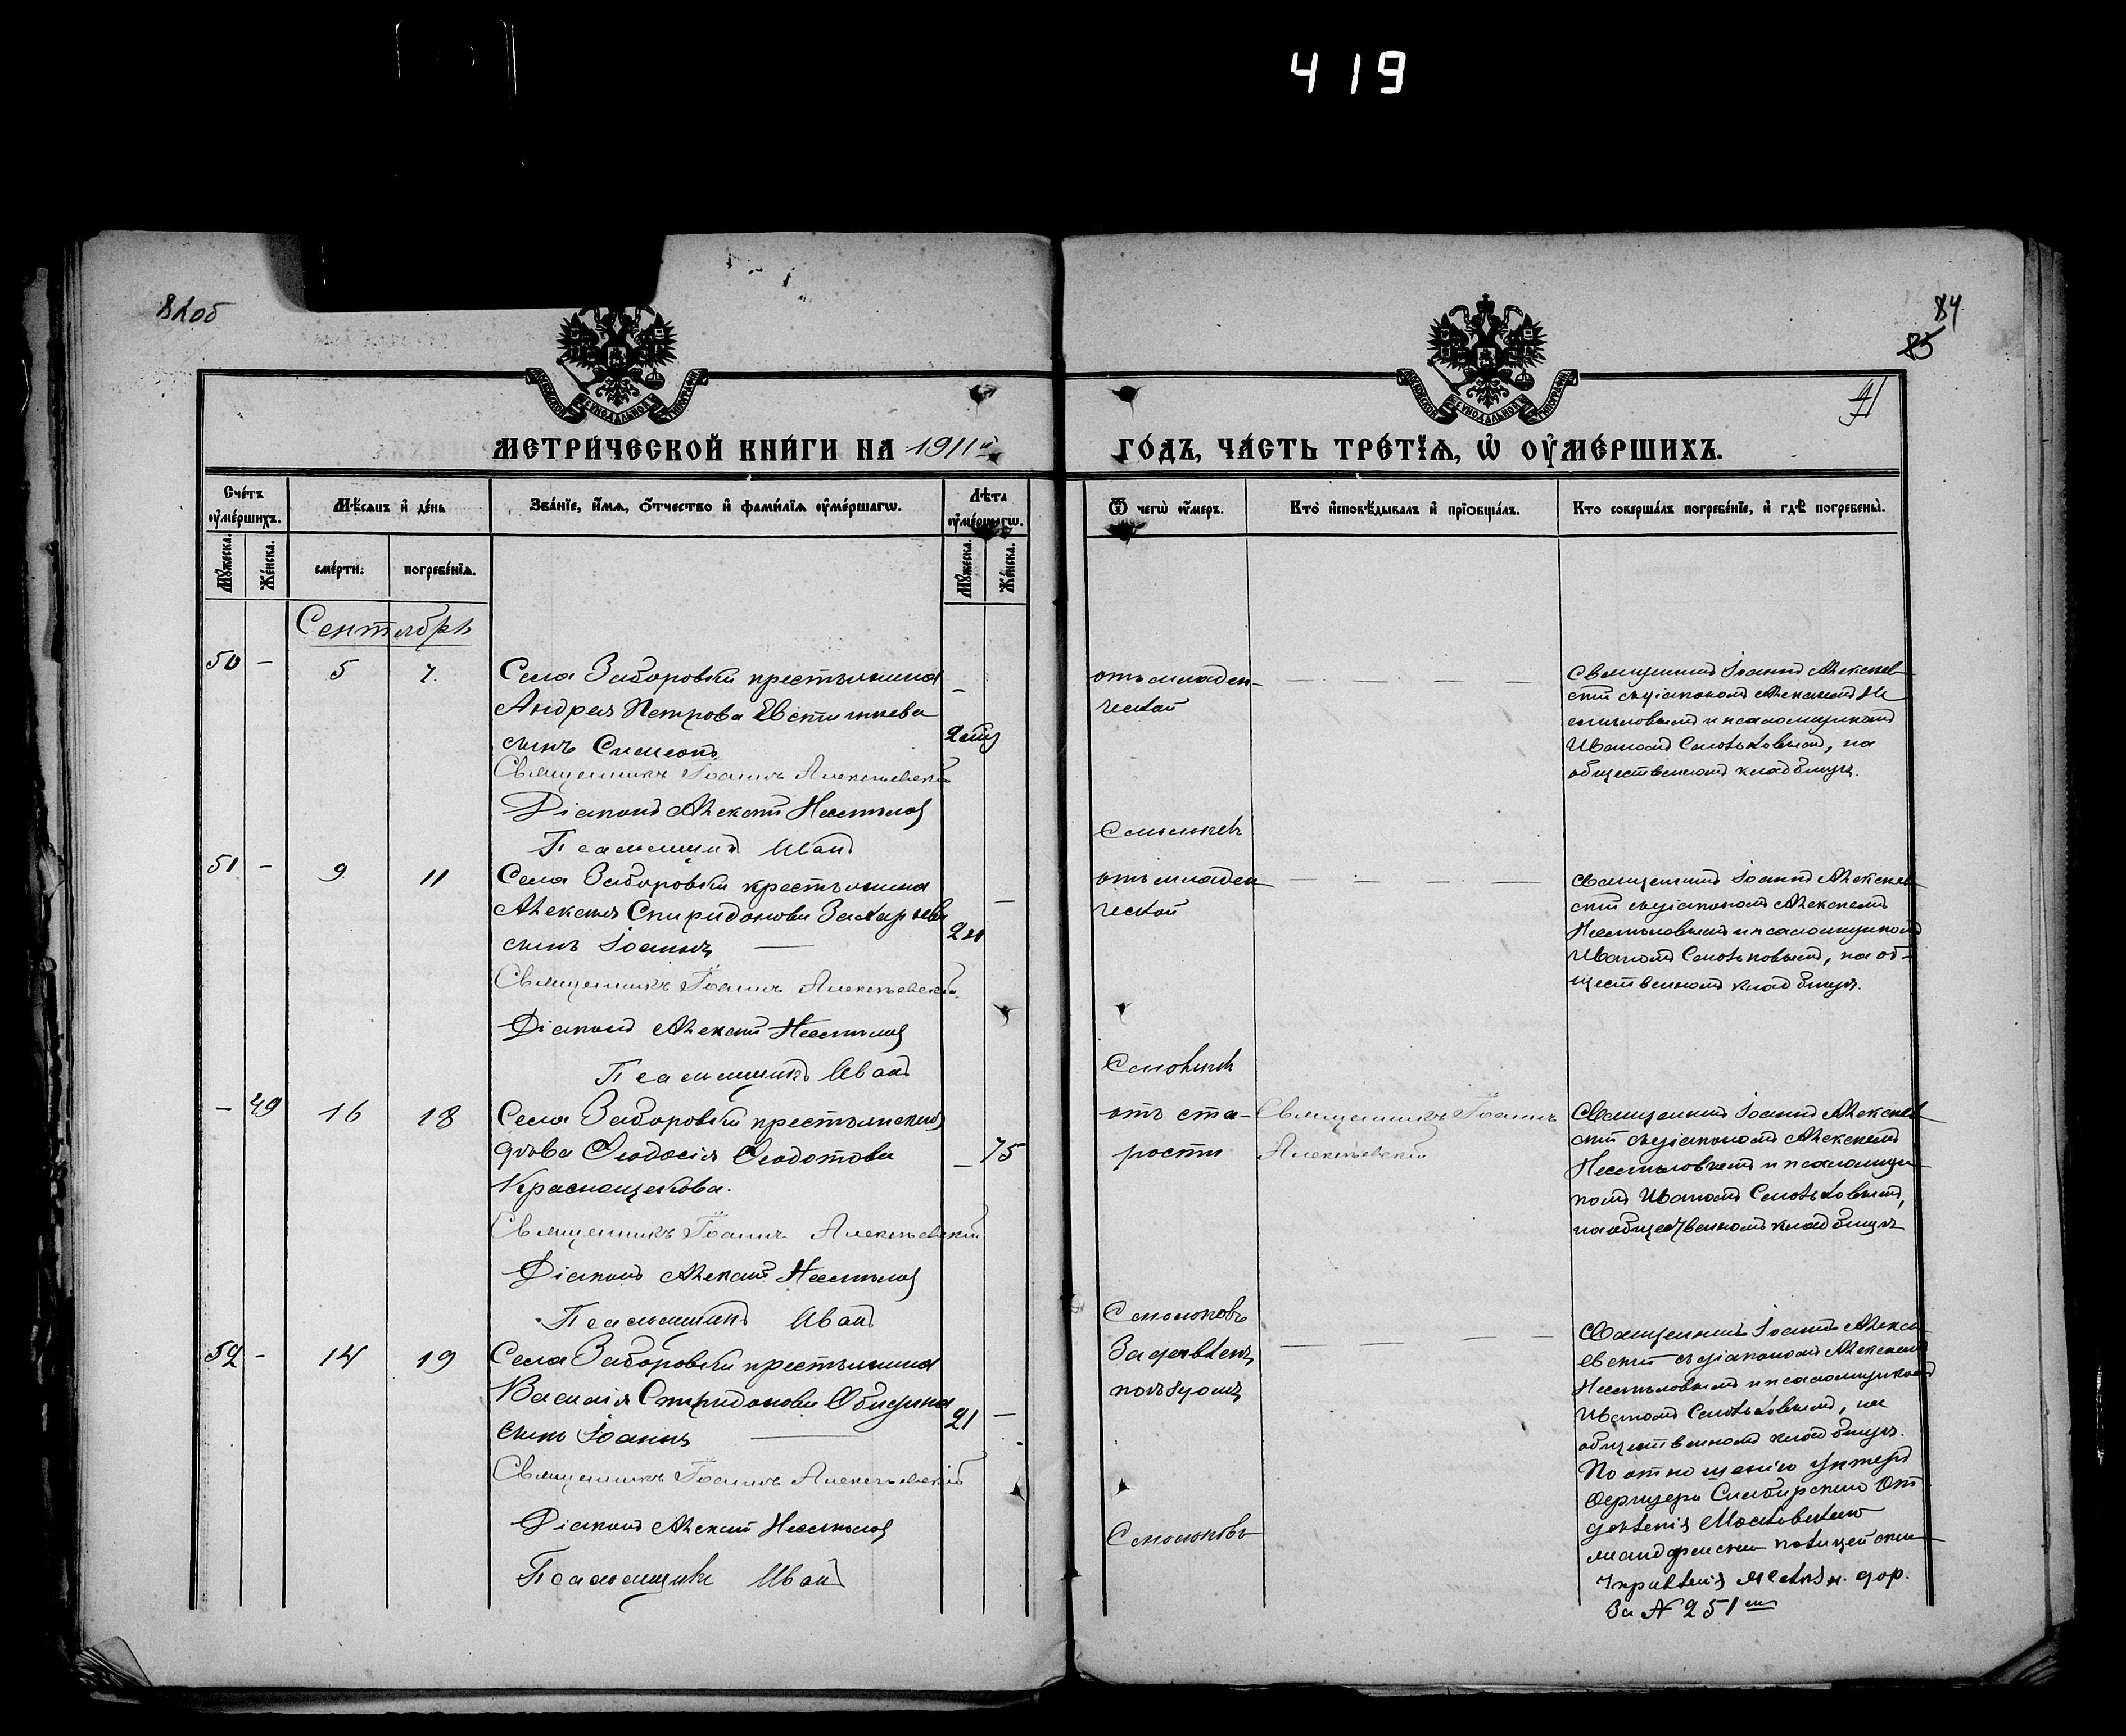 419
84
85
МЕТРИЧЕСКОЙ КНИГИ НА 1911й
ГОДЪ, ЧАСТЬ ТРЕТІЯ, Ѡ ОУМЕРШИХЪ.
Счетъ оумершихъ.
Мѣсяцъ и день
Званіе, имя, отчество и фамилія оумершагѡ.
Лѣта оумершагѡ.
Ѿ чегѡ оумеръ.
Кто исповѣдывалъ и пріобщалъ.
Кто совершалъ погребеніе, и гдѣ погребены.
Мужеска.
Женска.
смерти.
погребенія.
Мужеска.
Женска.
Сентябрь
50 - 5 7.
Села Заборовки крестьянина
Андрея Петрова Евстигнѣева
сынъ Симеонъ
Священникъ Іоаннъ Алексѣевскій
Діаконъ Алексѣй Несмѣловъ
Псаломщикъ Иванъ
отъ младен-
ческой
Священникъ Іоаннъ Алексѣев-
скій съ діакономъ Алексѣемъ Не
смѣловымъ и псаломщикомъ
Иваномъ , на
общественномъ кладбищѣ.
51 - 9 11
Села Заборовки крестьянина
Алексѣя Спиридонова Захарьева
сынъ Іоаннъ
Священникъ Іоаннъ Алексѣевскій
Діаконъ Алексѣй Несмѣловъ
Псаломщикъ Иванъ
отъ младен-
ческой
Священникъ Іоаннъ Алексѣев-
скій съ діакономъ Алексѣемъ
Несмѣловымъ и псаломщикомъ
Иваномъ , на об-
щественномъ кладбищѣ.
- 49 16 18
Села Заборовки крестьянская
дѣва Ѳеодосія Ѳеодотова
Краснощекова.
- 75
Священникъ Іоаннъ Алексѣевскій
Діаконъ Алексѣй Несмѣловъ
Псаломщикъ Иванъ
отъ ста-
рости
Священникъ Іоаннъ
Алексѣевскій
Священникъ Іоаннъ Алексѣев-
скій съ діакономъ Алексѣемъ
Несмѣловымъ и псаломщи-
комъ Иваномъ ,
на общественномъ кладбищѣ
52 - 14 19
Села Заборовки крестьянина
Василія Спиридонова
сынъ Іоаннъ
21 -
Священникъ Іоаннъ Алексѣевскій
Діаконъ Алексѣй Несмѣловъ
Псаломщикъ Иванъ
Задавленъ
поѣздомъ
Священникъ Іоаннъ Алексѣ-
евскій съ діакономъ Алексѣемъ
Несмѣловымъ и псаломщикомъ
Иваномъ , на
общественномъ кладбищѣ.
По отношенію унтеръ
офицера Сызранскаго От
дѣленія Московскаго
жандармскаго полицейскаго
Управленія желѣзн. дор.
За № 251